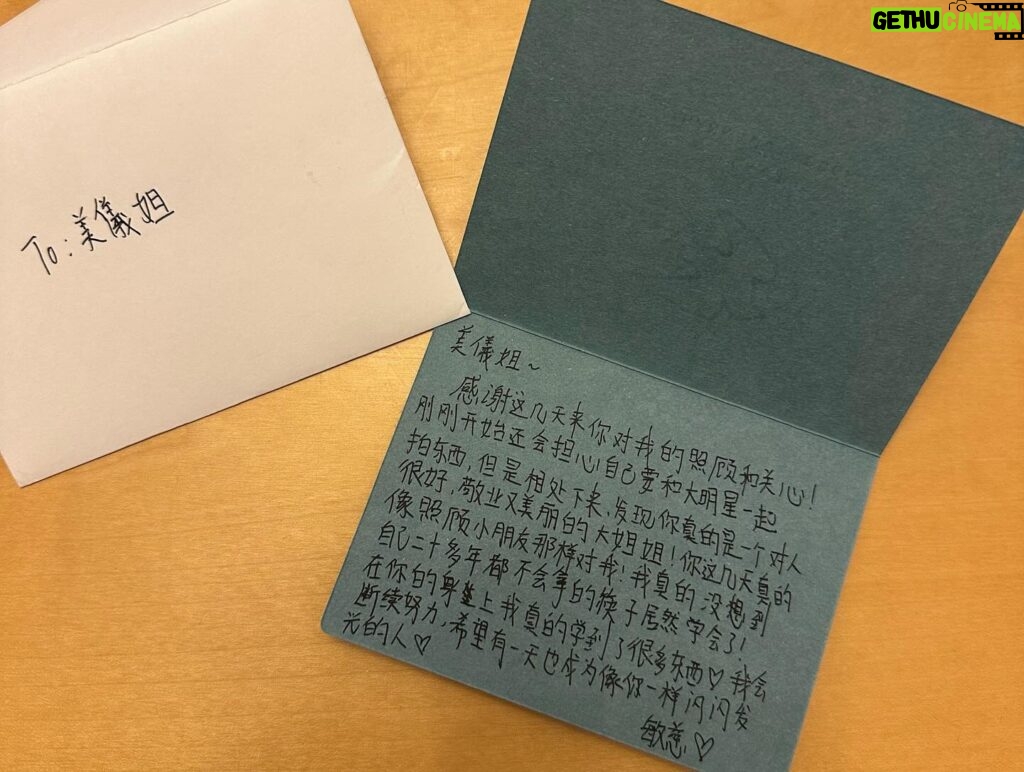 GETHU CINEMA
To: 美儀姐
美儀姐~
感谢这几天来你对我的照顾和关心!
刚刚开始还会担心自己要和大明星一起
拍东西,但是相处下来,发现你真的是一个对人
很好,敬业又美丽的大姐姐!你这几天真的
像照顾小朋友那样对我!我真的没想到
自己二十多年都不会拿的筷子居然学会了!
在你的身上我真的学到了很多东西♡我会
断续努力,希望有一天也成为像你一样闪闪发
光的人♡
敏慈♡